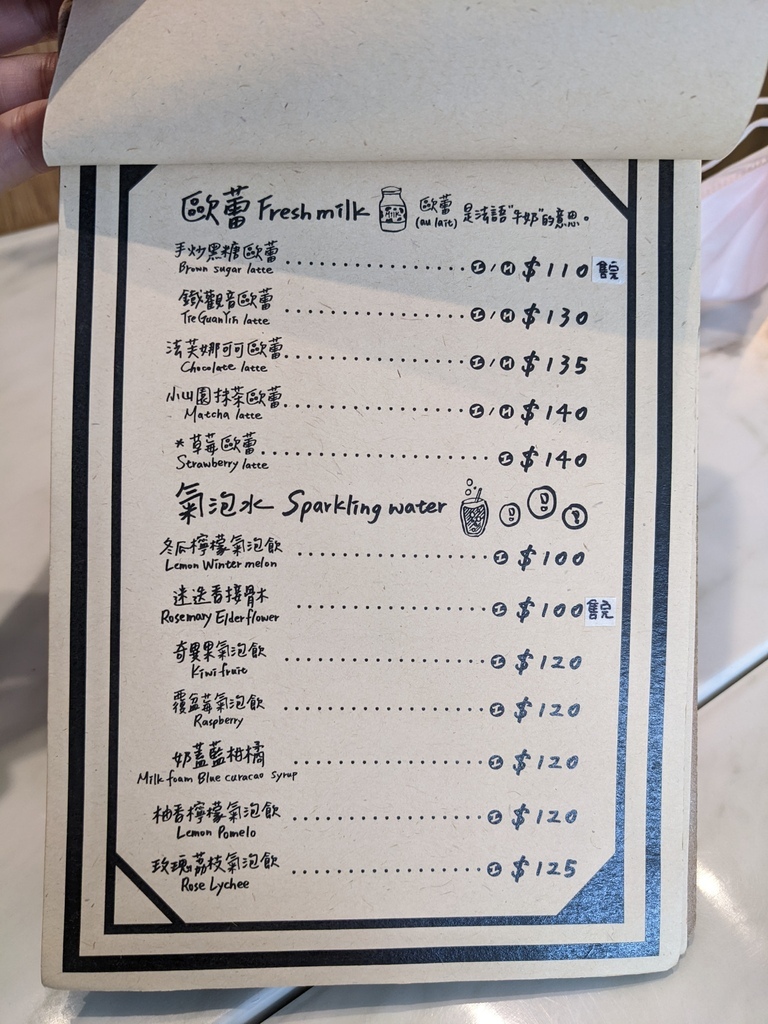 歐蕾 Fresh milk MILK 歐蕾 (au lait) 是法語"牛奶"的意思。
手炒黑糖歐蕾 ........................ I / H $110 售完
Brown sugar latte
鐵觀音歐蕾 ........................ I / H $130
Tie Guan Yin latte
法芙娜可可歐蕾 ........................ I / H $135
Chocolate latte
小山園抹茶歐蕾 ........................ I / H $140
Matcha latte
*草莓歐蕾 ........................ I $140
Strawberry latte
氣泡水 Sparkling water
冬瓜檸檬氣泡飲 ........................ I $100
Lemon Winter melon
迷迭香接骨木 ........................ I $100 售完
Rosemary Elderflower
奇異果氣泡飲 ........................ I $120
Kiwi fruit
覆盆莓氣泡飲 ........................ I $120
Raspberry
奶蓋藍柑橘 ........................ I $120
Milk foam Blue curacao syrup
柚香檸檬氣泡飲 ........................ I $120
Lemon Pomelo
玫瑰荔枝氣泡飲 ........................ I $125
Rose Lychee